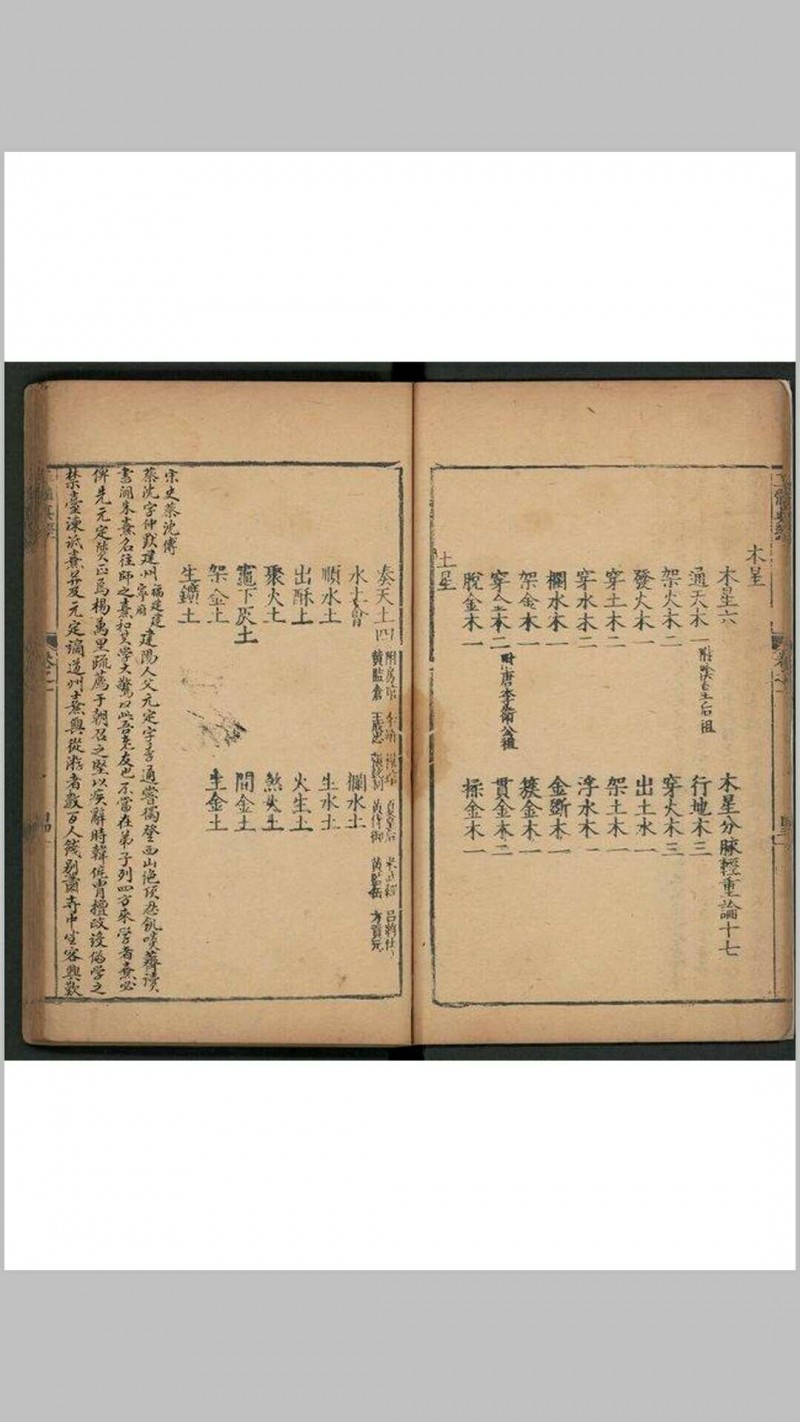 木星
木星六 木星分脉輕重論十七
通天木一 行地木三
架火木二 穿火木三
發火木一 出土水一
穿土木二 架土木一
穿水木二 浮水木一
欄水木一 金斷木一
架金木一 簇金木一
穿仝木二 附唐李衛公祖 貫金木二
脫金木一 採金木一
土星
奏天土四
水土會 欄水土
順水土 生水土
出酥土 火生土
聚火土 煞失土
竈下灰土 間金土
架金土 生金土
生鑛土
宋史蔡沈傳
蔡沈字仲默建州 福建建寧府 建陽人父元定字季通嘗獨登西山絶頂忍飢啖薺讀
書聞朱熹名往師之熹和其學大驚曰此吾老友也不當在弟子列四方來学者熹必
俾先元定質正焉楊萬里疏薦于朝召之堅以疾辭時韓侂胄擅政设偽学之
禁臺諫詆熹并及元定謫道州熹與從游者數百人餞别蕭寺中坐客興歎